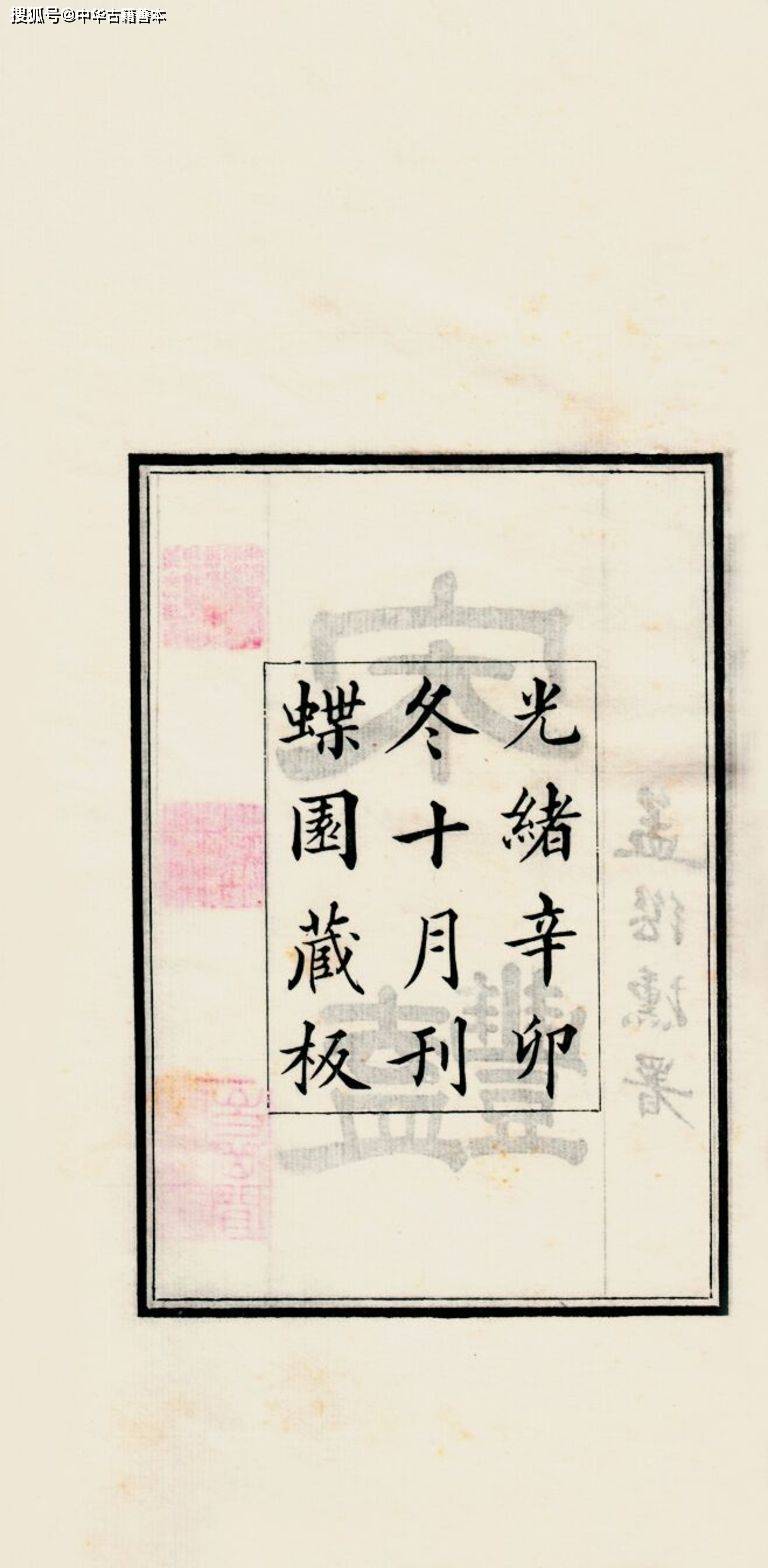 搜狐号@中华古籍善本
光緒辛卯
冬十月刊
蝶園藏板